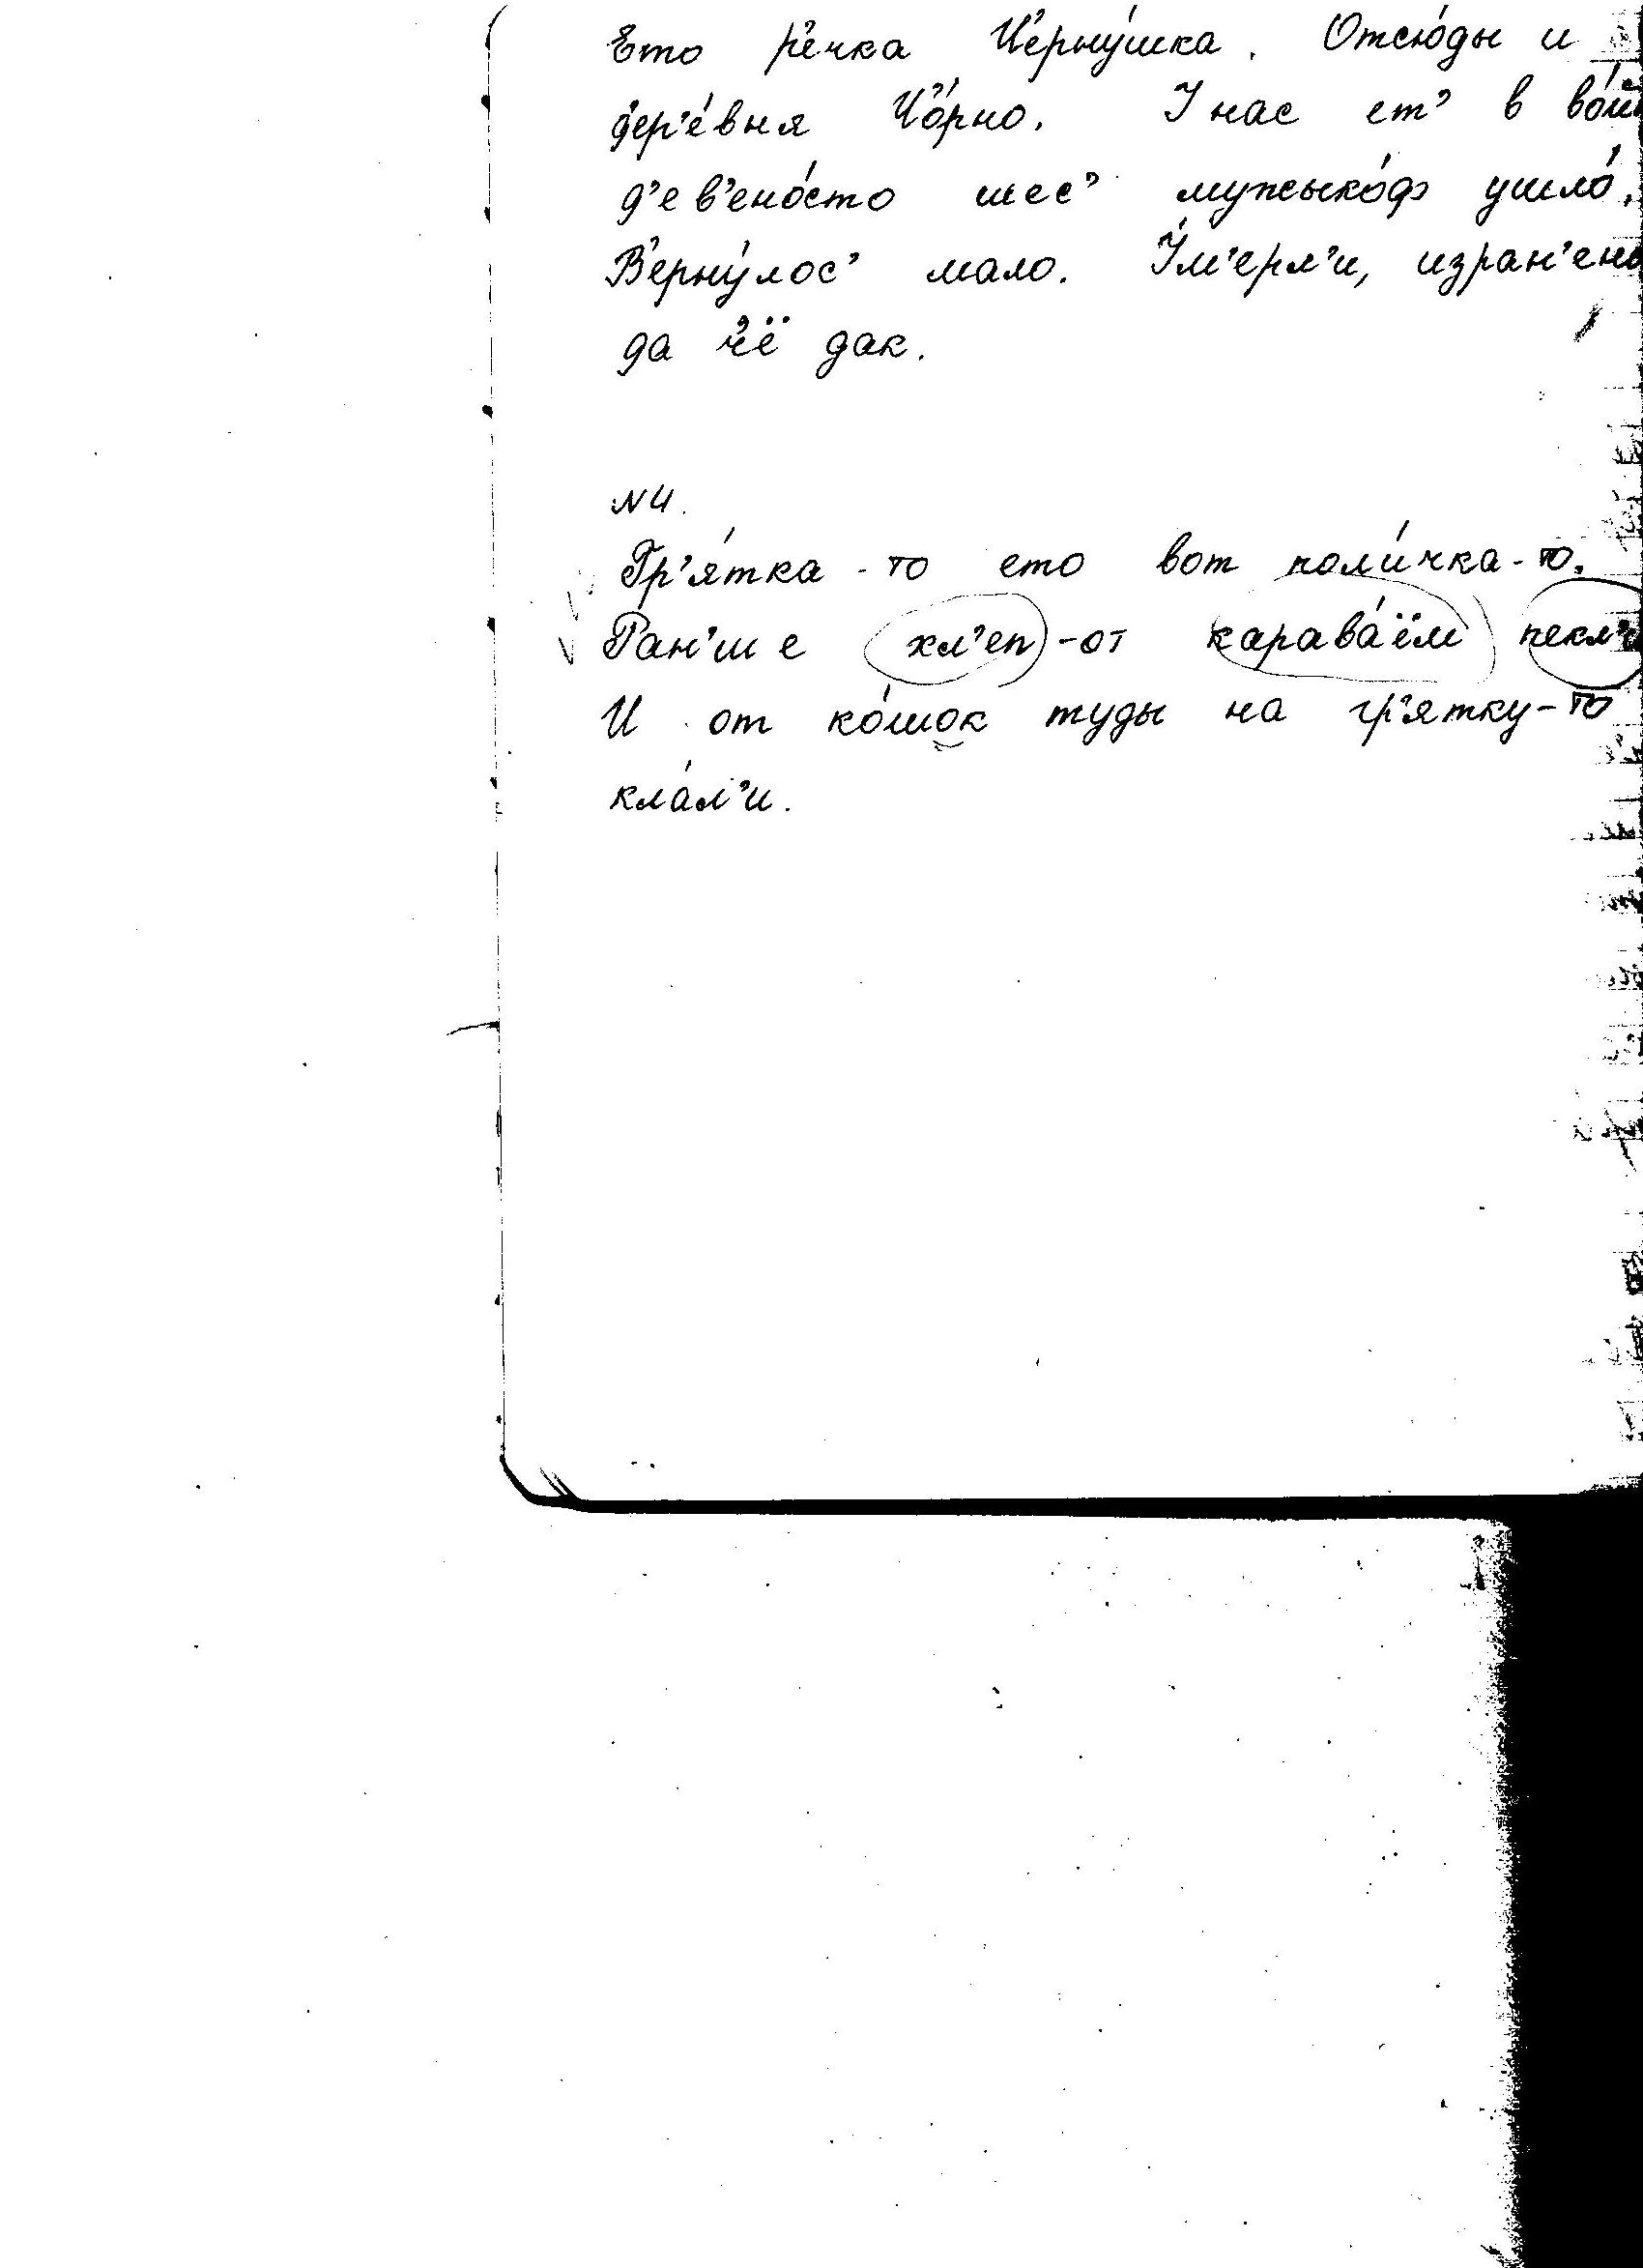 Ето р'е́чка Ч'ерну́шка. Отсю́ды и
дер'е́вня Ч'о́рно. У нас ет' в
д'ев'ено́сто шес' мужыко́ф ушло́.
В'ерну́лос' мало. У́м'ерл'и,
да ч'ё дак.
N4.
Гр'я́тка-то ето вот поли́чка-то.
Ран'ше хл'еп-от карава́ём
И от ко́шок туды на гр'ятку-то
кла́л'и.